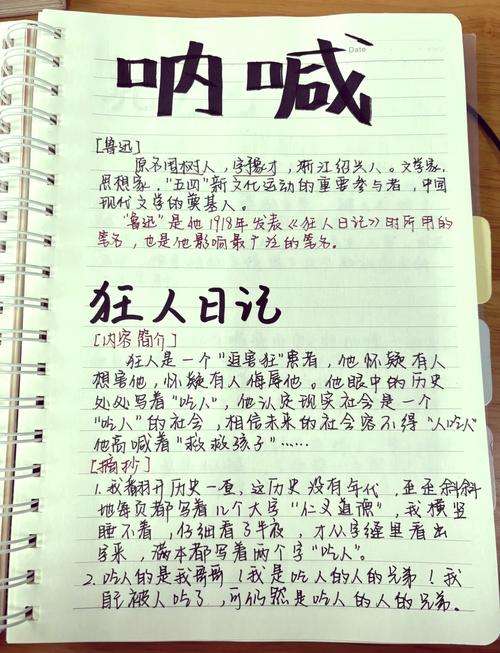 呐喊
Date
[鲁迅]
原名周树人，字豫才，浙江绍兴人。文学家，
思想家，“五四”新文化运动的重要参与者，中国
现代文学的奠基人。
“鲁迅”是他1918年发表《狂人日记》时所用的
笔名，也是他影响最广泛的笔名。
狂人日记
[内容简介]
狂人是一个“迫害狂”患者，他怀疑有人
想害他，怀疑有人侮辱他。他眼中的历史
处处写着“吃人”，他认定现实社会是一个
“吃人”的社会，相信未来的社会容不得“人吃人”
他高喊着“救救孩子”……
[摘抄]
1. 我翻开历史一查，这历史没有年代，歪歪斜斜
地每页都写着几个大字“仁义道德”，我横竖
睡不着，仔细看了半夜，才从字缝里看出
字来，满本都写着两个字“吃人”。
2. 吃人的是我哥哥！我是吃人的人的兄弟！我
自己被人吃了，可仍然是吃人的人的兄弟。